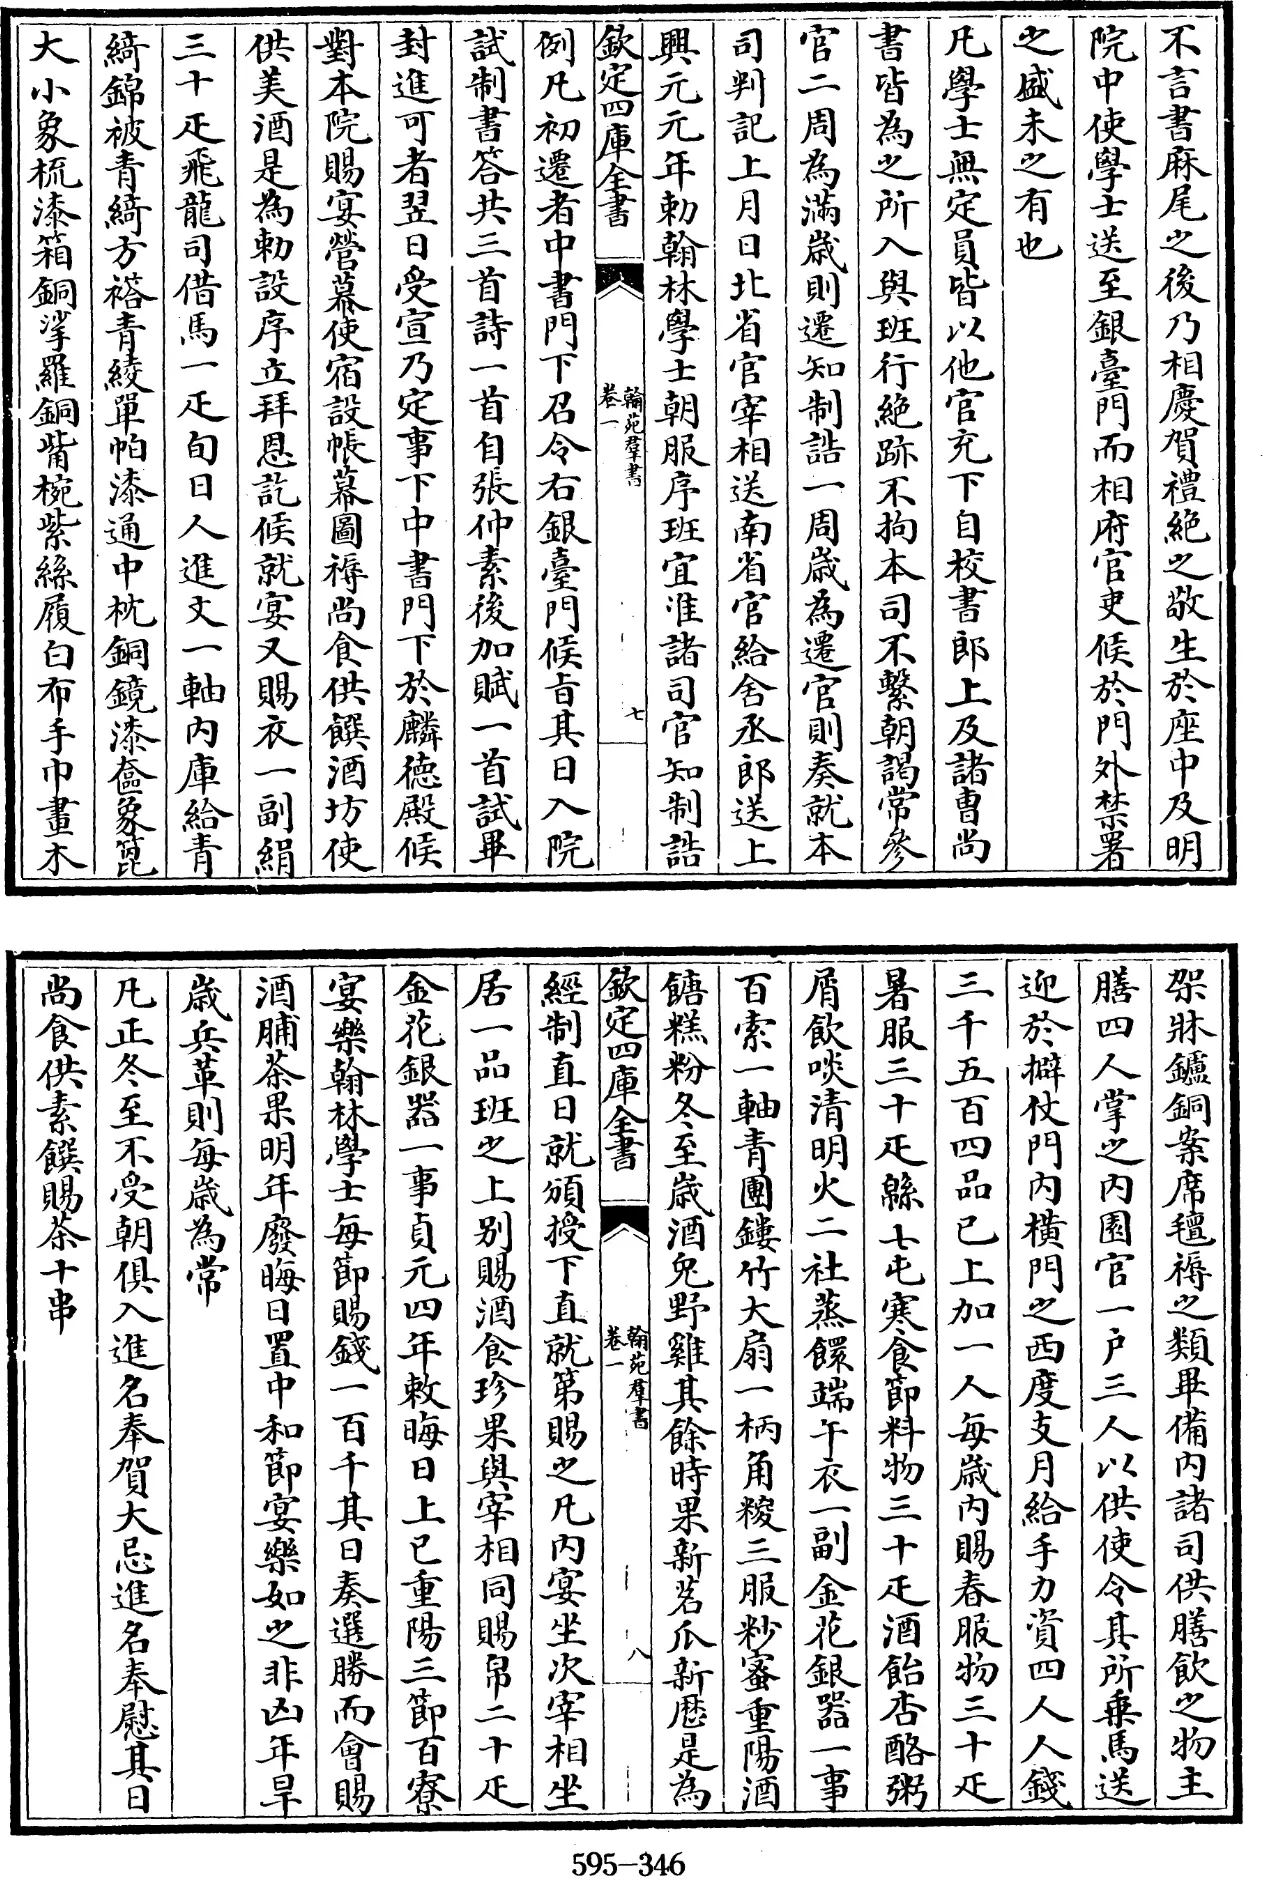 不言書麻尾之後乃相慶賀禮絶之敬生於座中及明
院中使學士送至銀臺門而相府官吏候於門外禁署
之盛未之有也
凡學士無定員皆以他官充下自校書郎上及諸曹尚
書皆為之所入與班行絶跡不拘本司不繫朝謁常參
官二周為滿歲則遷知制誥一周歲為遷官則奏就本
司判記上月日北省官宰相送南省官給舍丞郎送上
興元元年勅翰林學士朝服序班宜准諸司官知制誥
欽定四庫全書
翰苑羣書
卷一
七
例凡初遷者中書門下召令右銀臺門候㫖其日入院
試制書答共三首詩一首自張仲素後加賦一首試畢
封進可者翌日受宣乃定事下中書門下於麟德殿候
對本院賜宴營幕使宿設帳幕圖褥尚食供饌酒坊使
供美酒是為勅設序立拜恩訖候就宴又賜衣一副絹
三十疋飛龍司借馬一疋旬日人進文一軸内庫給青
綺錦被青綺方褡青綾單帕漆通中枕銅鏡漆奩象篦
大小象梳漆箱銅挲羅銅觜椀紫絲履白布手巾畫木
架牀鑪銅案席氊褥之類畢備内諸司供膳飲之物主
膳四人掌之内園官一户三人以供使令其所乗馬送
迎於擗仗門内横門之西度支月給手力資四人人錢
三千五百四品已上加一人每歲内賜春服物三十疋
暑服三十疋緜七屯寒食節料物三十疋酒飴杏酪粥
屑飲啖清明火二社蒸餪端午衣一副金花銀器一事
百索一軸青團鏤竹大扇一柄角糉三服粆蜜重陽酒
餹糕粉冬至歲酒兔野雞其餘時果新茗瓜新厯是為
欽定四庫全書
翰苑羣書
卷一
八
經制直日就頒授下直就第賜之凡内宴坐次宰相坐
居一品班之上别賜酒食珍果與宰相同賜帛二十疋
金花銀器一事貞元四年敕晦日上巳重陽三節百寮
宴樂翰林學士每節賜錢一百千其日奏選勝而會賜
酒脯茶果明年廢晦日置中和節宴樂如之非凶年旱
歲兵革則每歲為常
凡正冬至不受朝俱入進名奉賀大忌進名奉慰其日
尚食供素饌賜茶十串
595-346